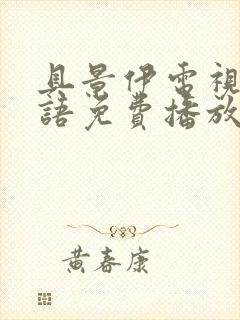 具景伊電視
語免費播放
黃春康